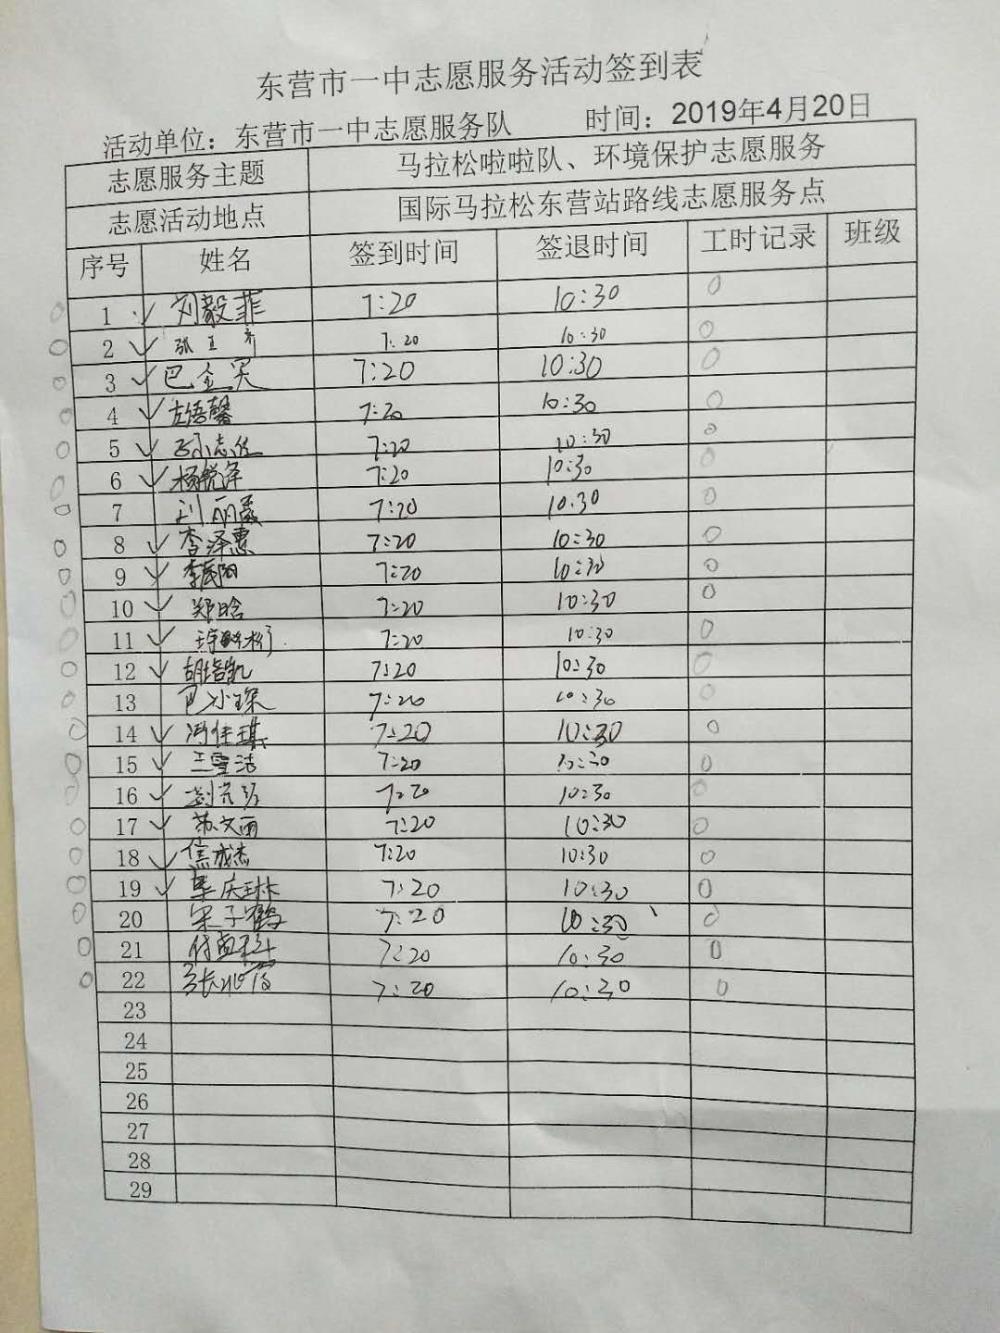 东营市一中志愿服务活动签到表
活动单位：东营市一中志愿服务队 时间：2019年4月20日
志愿服务主题 马拉松啦啦队、环境保护志愿服务
志愿活动地点 国际马拉松东营站路线志愿服务点
序号 姓名 签到时间 签退时间 工时记录 班级
1 ✓ 刘毅菲 7:20 10:30 0
2 ✓ 7:20 10:30 0
3 ✓ 7:20 10:30 0
4 ✓ 左语馨 7:20 10:30 0
5 ✓ 7:20 10:30 0
6 ✓ 杨锐泽 7:20 10:30 0
7 7:20 10:30 0
8 ✓ 李泽惠 7:20 10:30 0
9 ✓ 7:20 10:30 0
10 ✓ 郑晗 7:20 10:30 0
11 ✓ 7:20 10:30 0
12 ✓ 7:20 10:30 0
13 巴小琛 7:20 10:30 0
14 ✓ 冯佳琪 7:20 10:30 0
15 ✓ 王雪洁 7:20 10:30 0
16 ✓ 7:20 10:30 0
17 ✓ 苏文雨 7:20 10:30 0
18 ✓ 焦成杰 7:20 10:30 0
19 ✓ 7:20 10:30 0
20 宋子鹤 7:20 10:30 0
21 7:20 10:30 0
22 7:20 10:30 0
23
24
25
26
27
28
29